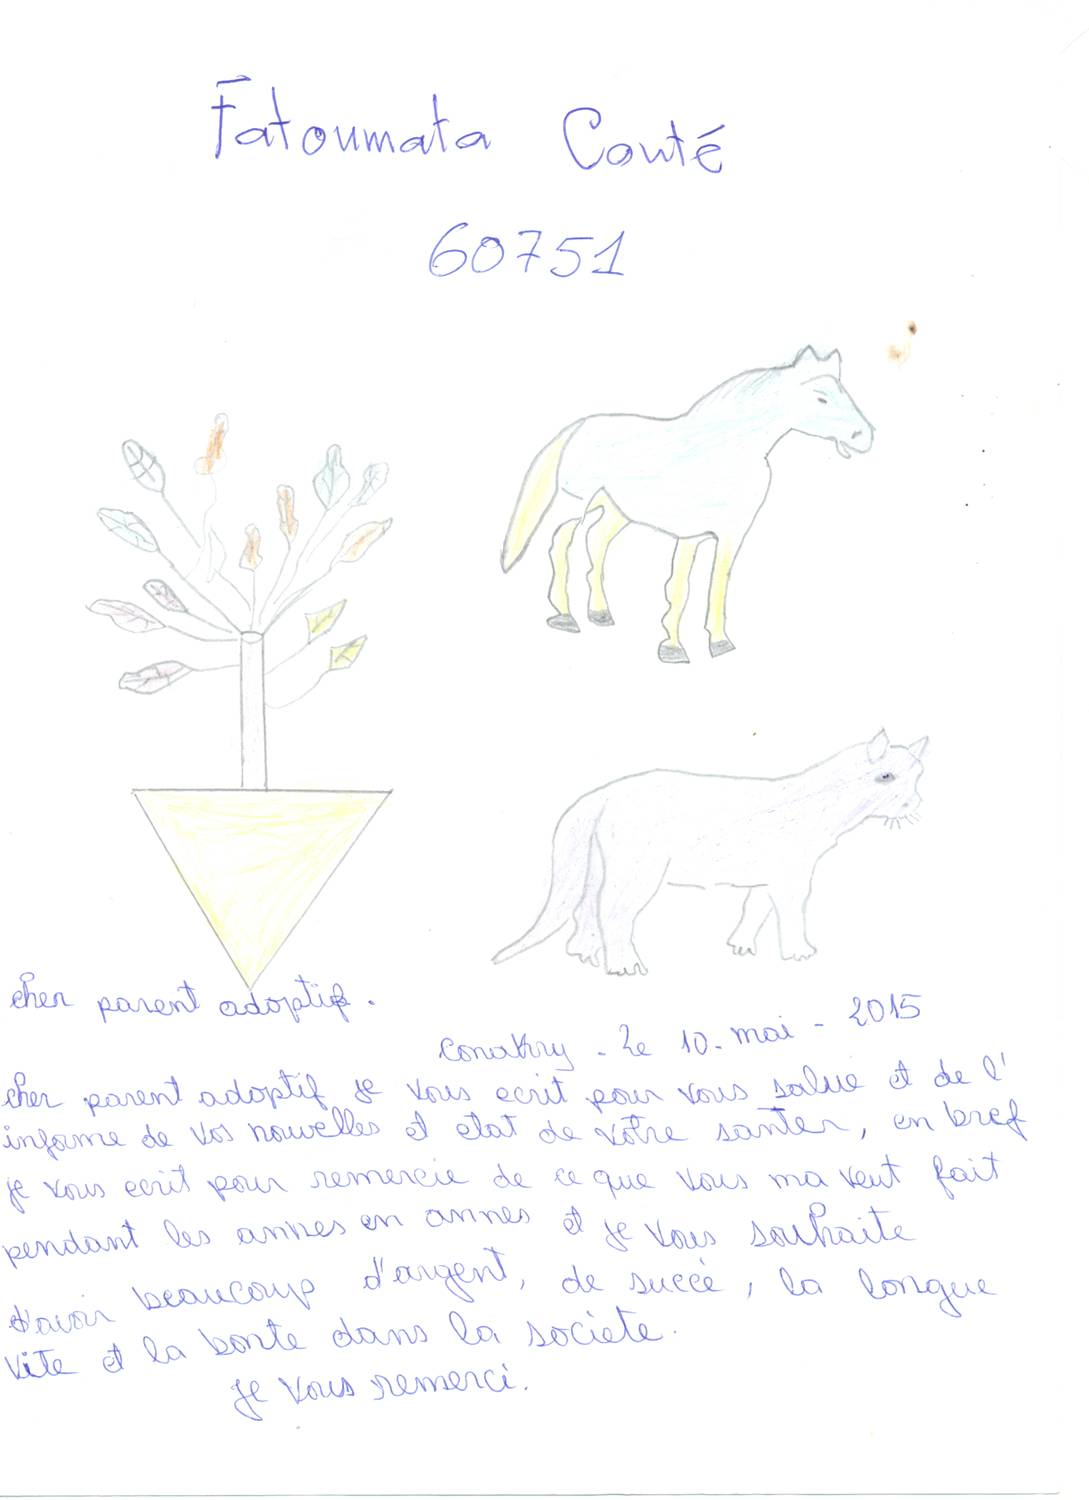 Fatoumata Conté
60751
cher parent adoptif.
Conakry - Le 10 - mai - 2015
cher parent adoptif je vous ecrit pour vous salué et de l'
informe de vos nouvelles et etat de votre santer, en bref
je vous ecrit pour remercie de ce que vous ma vent fait
pendant les annes en annes et je vous souhaite
d'avoir beaucoup d'argent, de succé, la longue
vite et la bonte dans la societe.
je vous remerci.